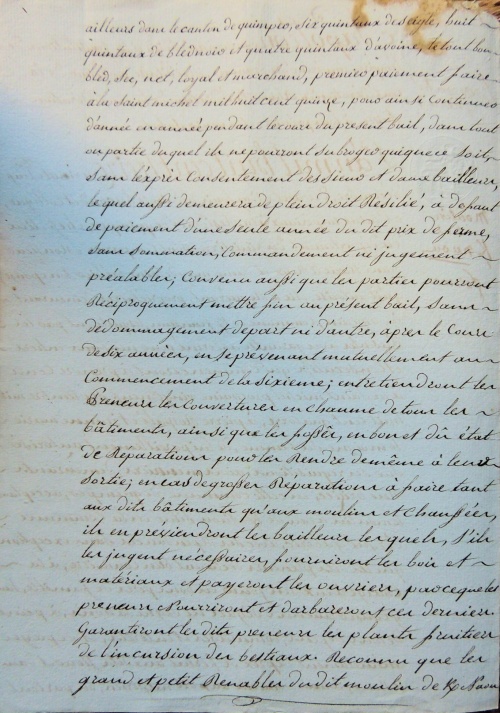 ailleurs dans le canton de quimper, six quintaux de seigle, huit
quintaux de bled noir et quatre quintaux d'avoine, le tout bon
bled, sec, net, loyal et marchand, premier paiement faire
à la saint michel mil huit cent quinze, pour ainsi continuer
d'année en année pendant le cours du present bail, dans tout
ou partie duquel ils ne pourront subroger quique ce soit,
sans l'exprès Consentement des sieur et dame bailleurs,
lequel aussi demeurera de plein droit Résilié, à défaut
de paiement d'une seule année du dit prix de ferme,
sans sommation, Commandement ni jugement
préalables; Convenu aussi que les parties pourront
Réciproquement mettre fin au présent bail, sans
dédommagement de part ni d'autre, après le Cours
de six années, en se prévenant mutuellement au
Commencement de la sixieme; entretiendront les
Preneurs les Couvertures en Chaume de tous les
bâtiments, ainsi que les fossés, en bon et dû état
de Réparations pour les Rendre de même à leur
sortie; en cas de grosses Réparations à faire tant
aux dits bâtiments qu'aux moulins et Chaussées,
ils en préviendront les bailleurs lesquels, s'ils
les jugent nécessaires, fourniront les bois et
matériaux et payeront les ouvriers, parceque les
preneurs Nourriront et darbareront ces derniers.
Garantiront les dits preneurs les plants fruitiers
de l'incursion des bestiaux. Reconnu que les
grand et petit Renables du dit moulin de